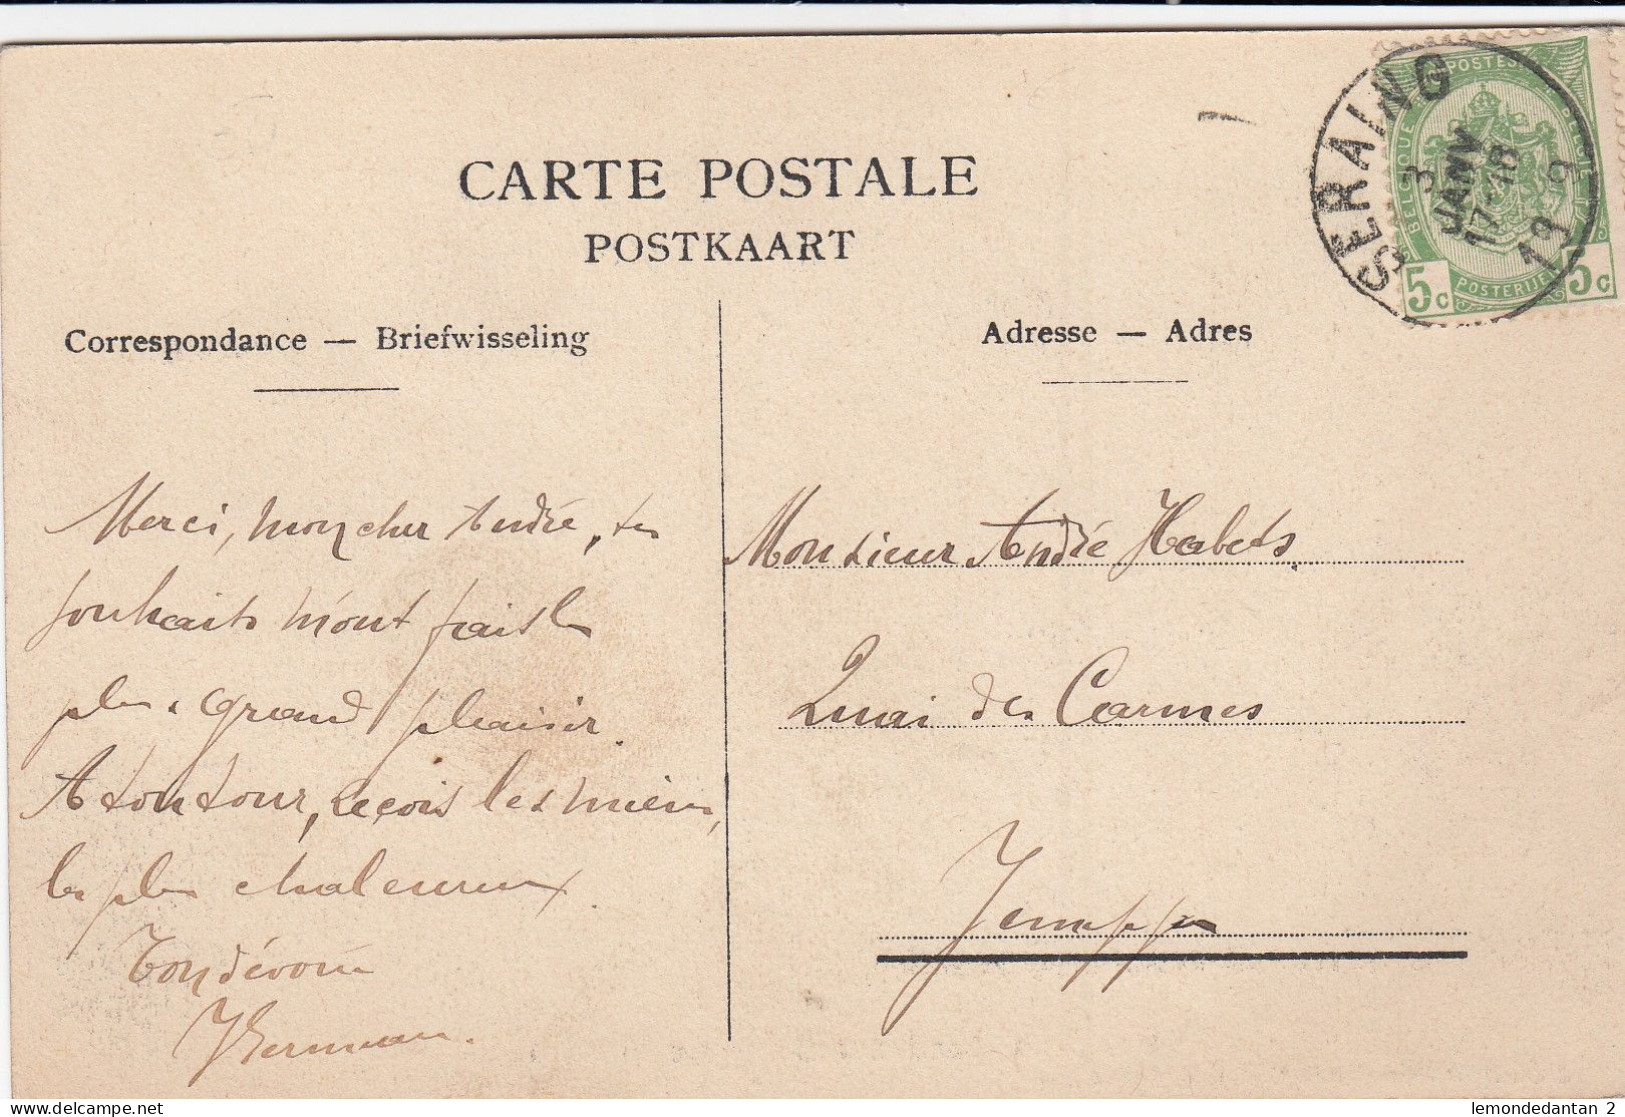 CARTE POSTALE
POSTKAART
Correspondance — Briefwisseling
Adresse — Adres
SERAING
3
JANV
17-18
19 9
POSTES
BELGIQUE
BELGIE
5c POSTERIJEN 5c
Merci, mon cher André, tes
souhaits m'ont fait le
plus grand plaisir.
A ton tour, reçois les miens,
les plus chaleureux.
Ton dévoué
Herman.
Monsieur André Habets
Quai des Carmes
Jemeppe
lemondedantan_2